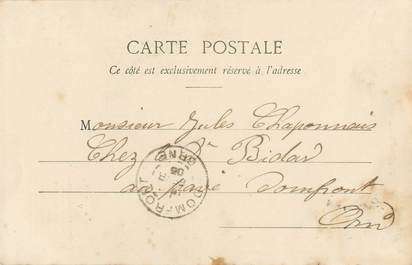 CARTE POSTALE
Ce côté est exclusivement réservé à l'adresse
Monsieur Jules Chaponnais
Chez Bidar
au pavé Domfront
Orne
DOMFRONT
ORNE